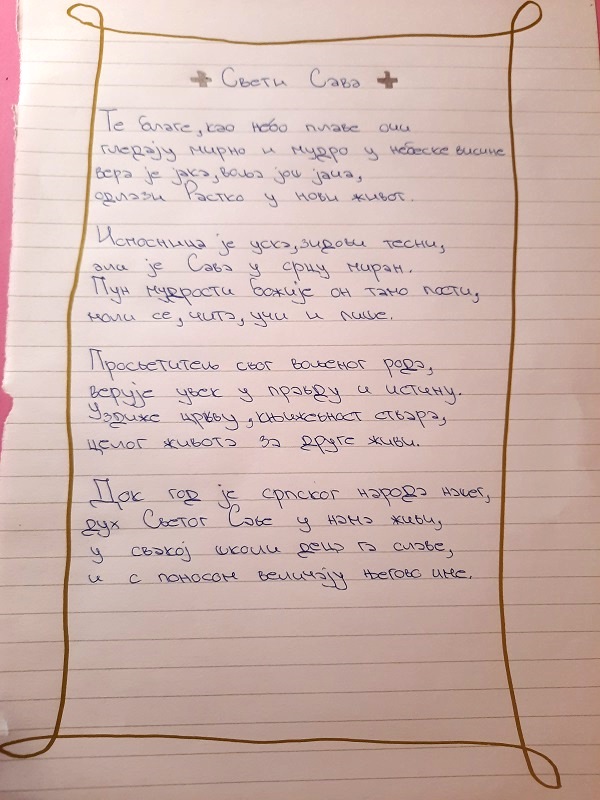 Свети Сава
Те благе, као небо плаве очи
гледају мирно и мудро у небеске висине
вера је јака, воља још јача,
одлази Растко у нови живот.
Испосница је уска, зидови тесни,
али је Сава у срцу миран.
Пун мудрости божије он тамо пости,
моли се, чита, учи и пише.
Просветитељ свог вољеног рода,
верује увек у правду и истину.
Уздиже цркву, књижевност ствара,
целог живота за друге живи.
Док год је српског народа нашег,
дух Светог Саве у нама живи,
у свакој школи деца га славе,
и с поносом величају његово име.